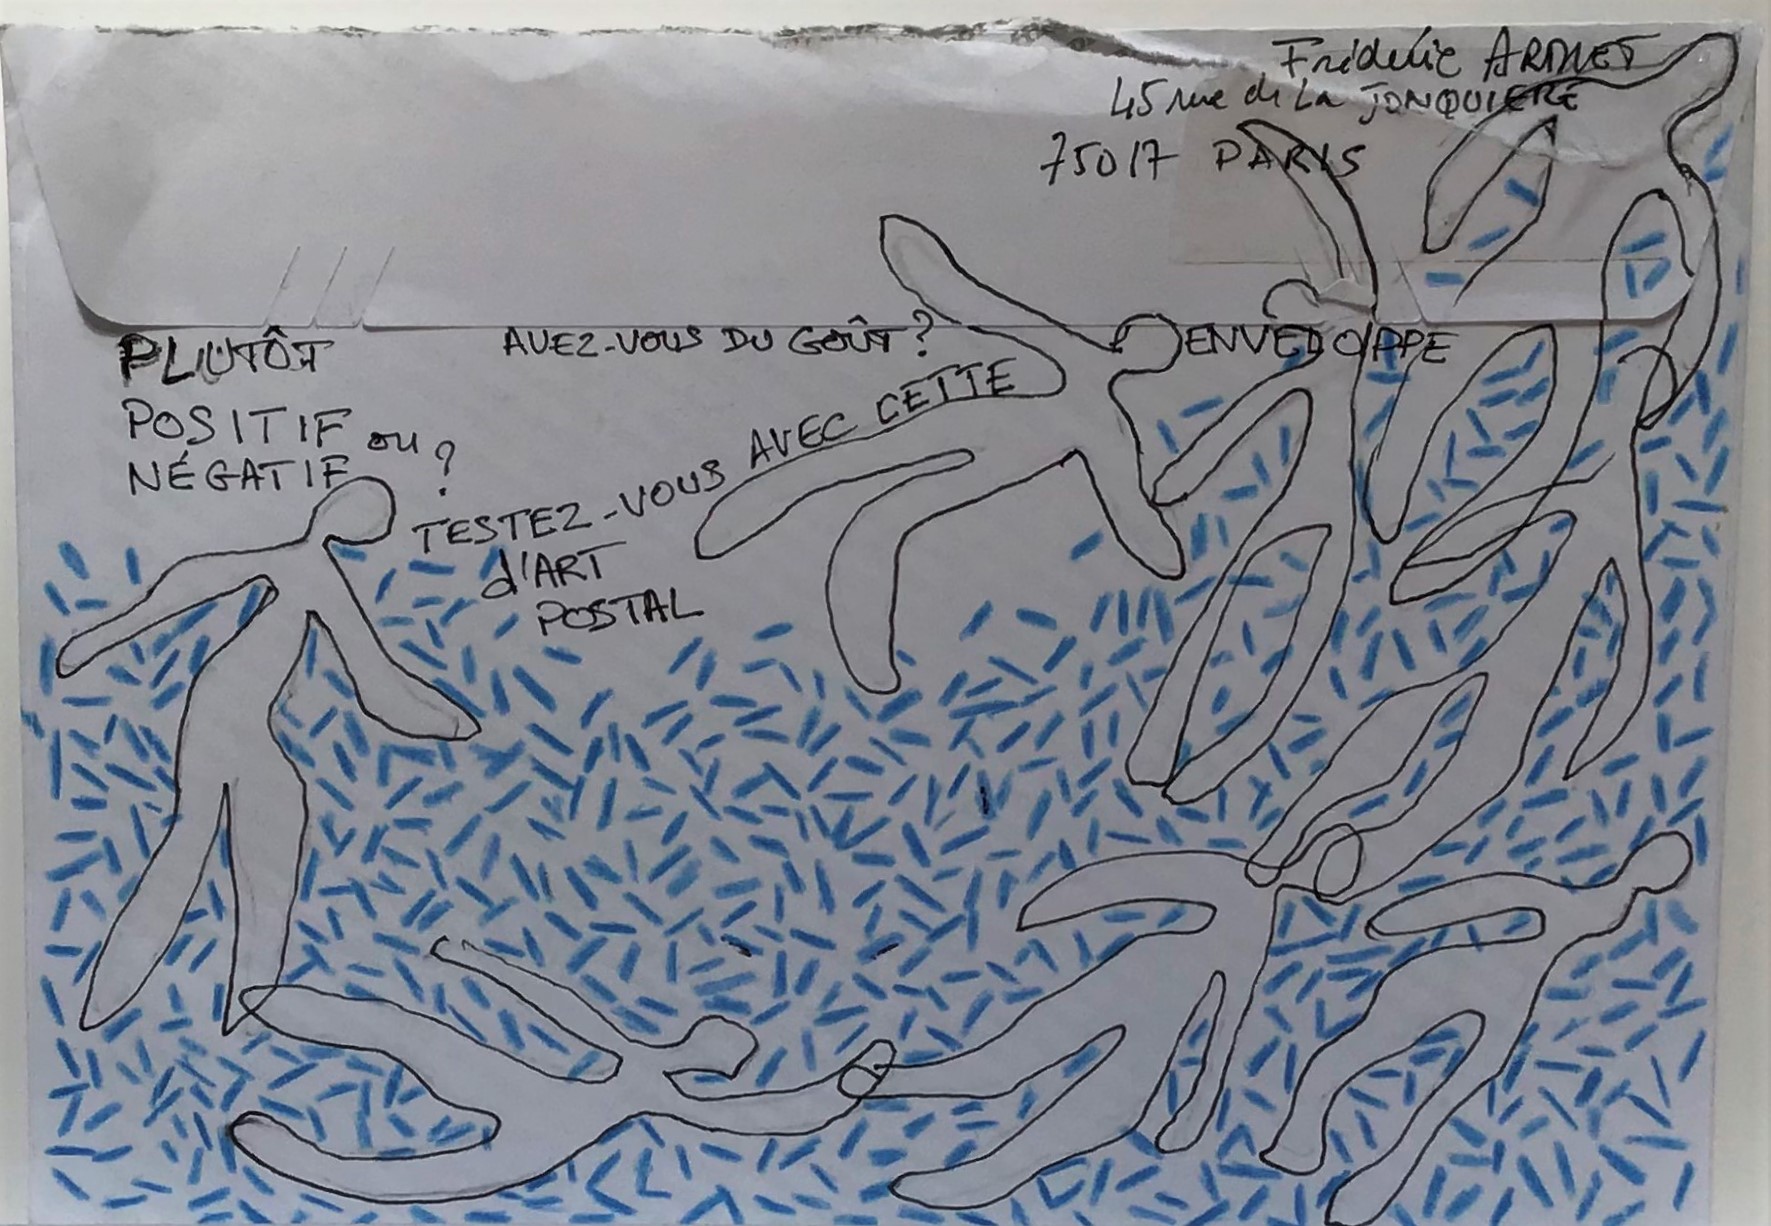 Fréderic ARDNET
45 rue de La JONQUIERE
75017 PARIS
PLUTÔT
POSITIF ou
NÉGATIF ?
AVEZ-VOUS DU GOÛT ?
TESTEZ-VOUS AVEC CETTE ENVEDOPPE
d'ART
POSTAL